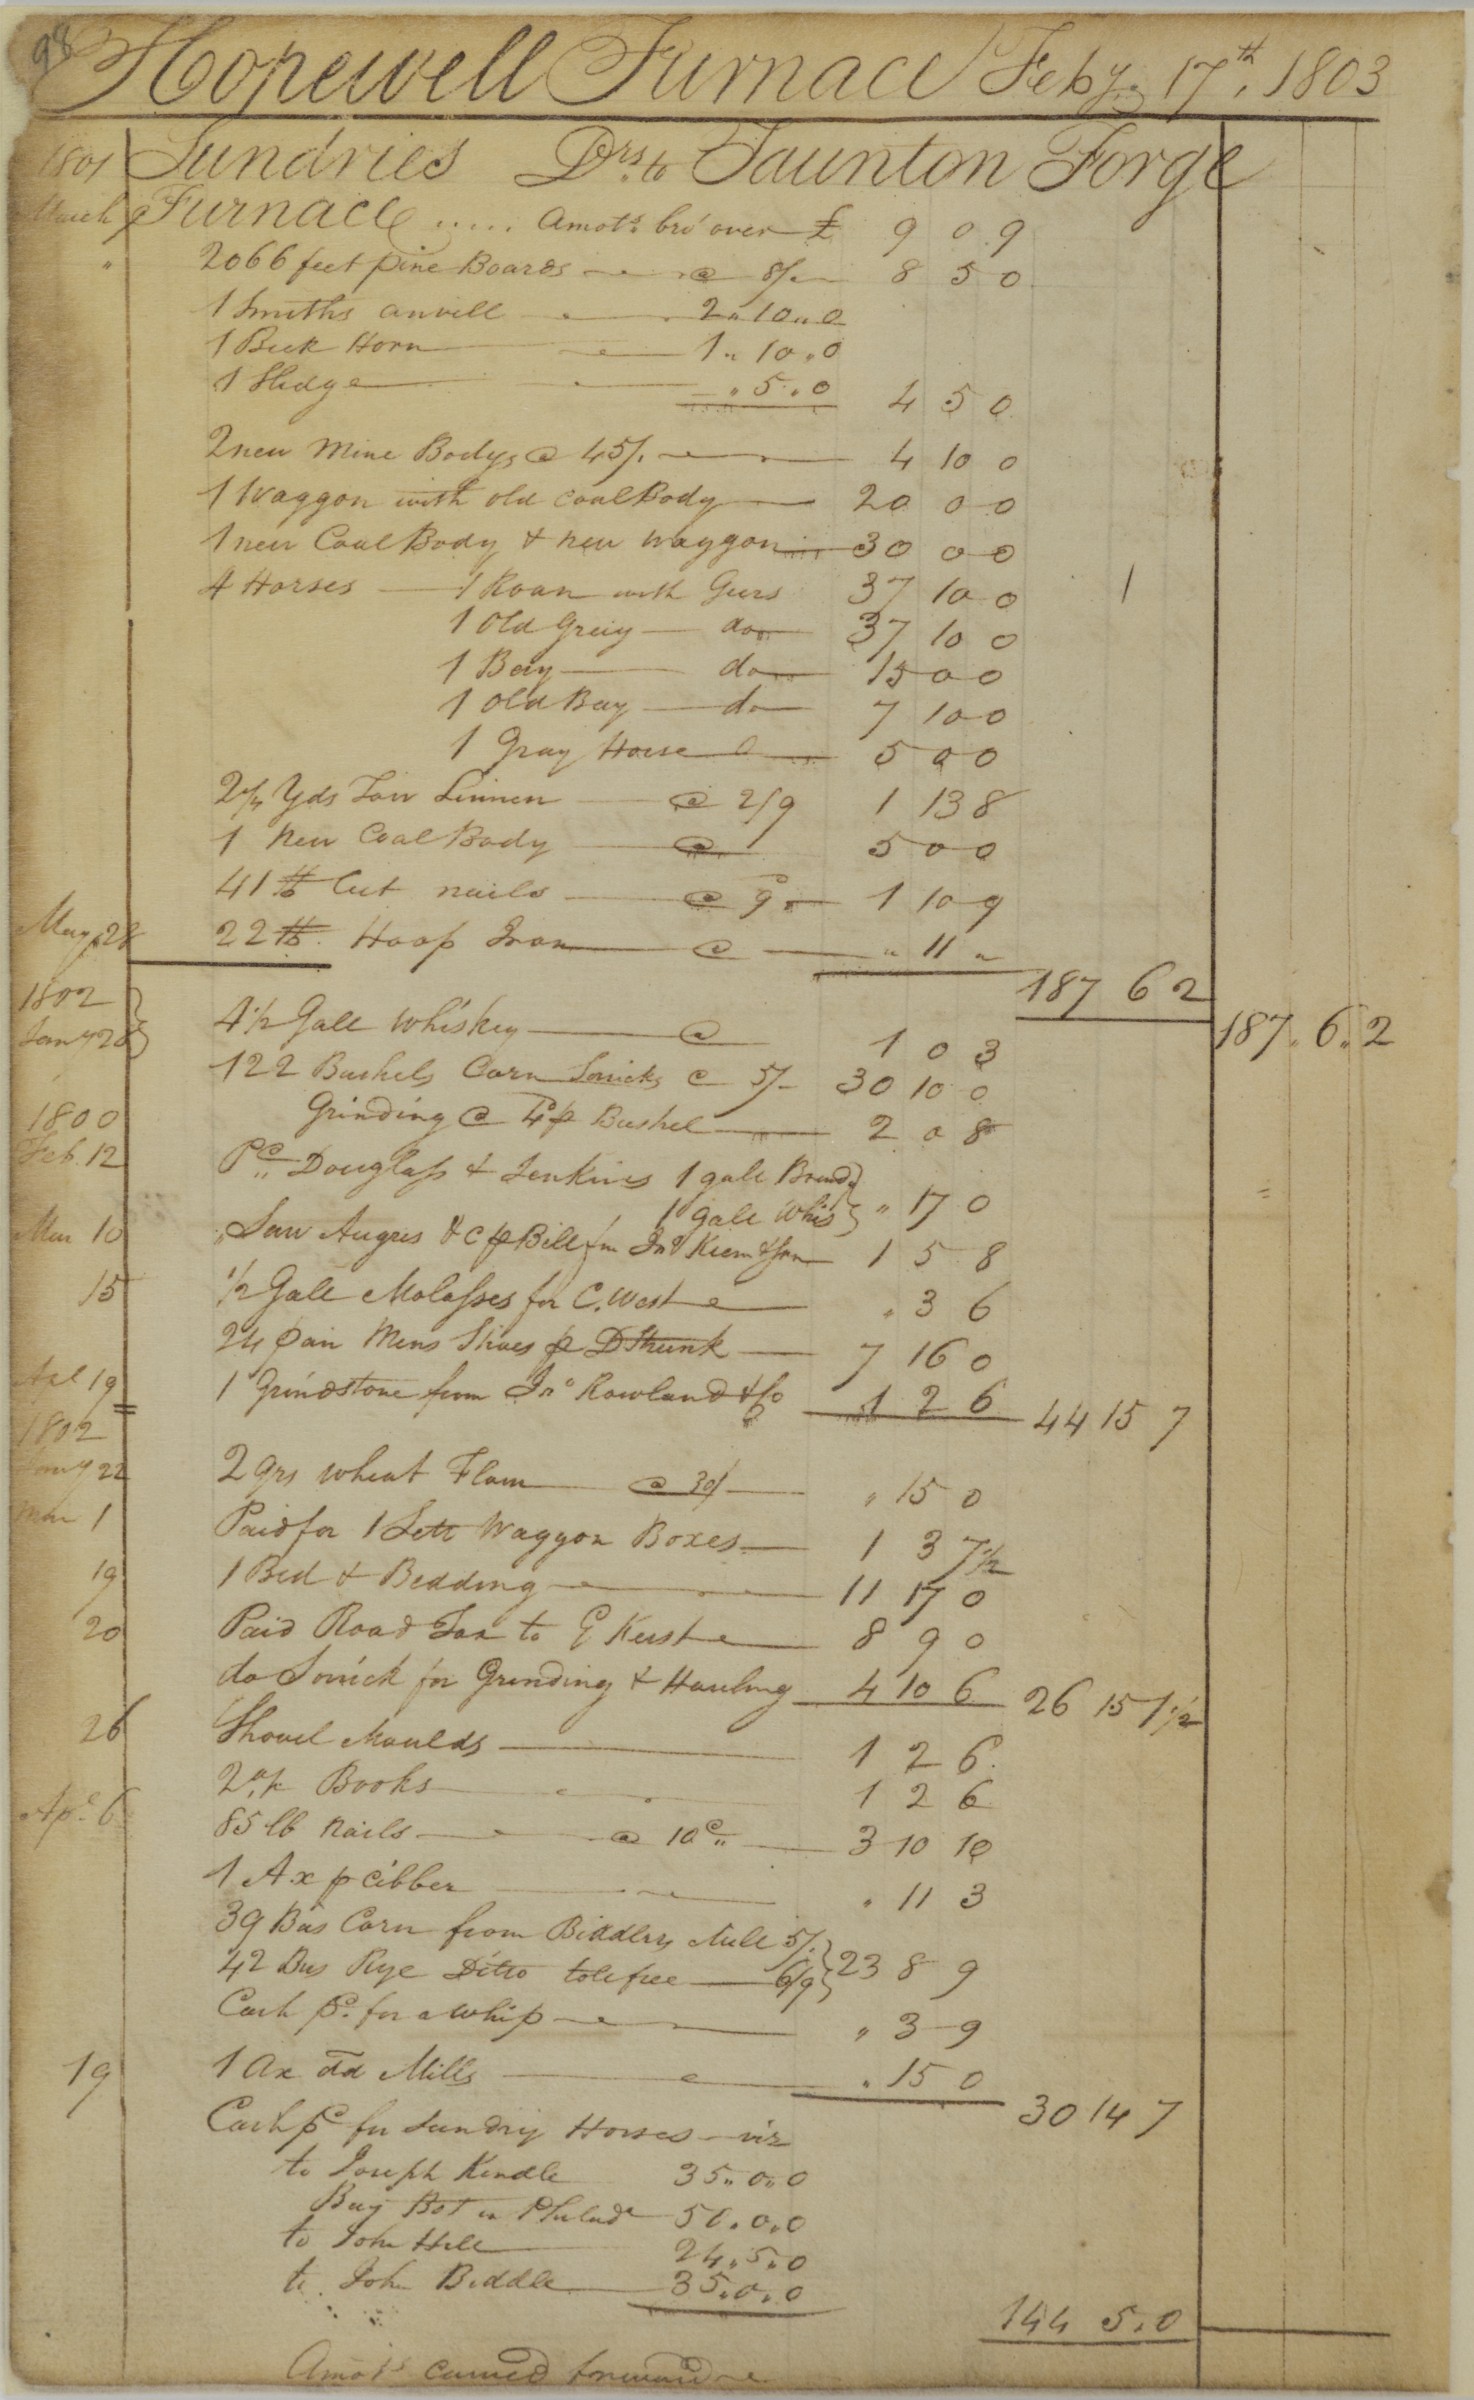 98 Hopewell Furnace Feby. 17th. 1803
1801 Sundries Drs. to Taunton Forge
March 9 Furnace ..... Amots. bro' over £ 9 0 9
" 2066 feet pine Boards @ 8/. 8 5 0
1 Smiths anvill 2..10..0
1 Beck Horn 1..10..0
1 Sledge - ..5..0 4 5 0
2 new Mine Bodys @ 45/. 4 10 0
1 Waggon with old Coal Body 20 0 0
1 new Coal Body & new Waggon 30 0 0
4 Horses 1 Roan with Geers 37 10 0
1 Old Greiy do 37 10 0
1 Bay do 15 0 0
1 Old Bay do 7 10 0
1 Gray Horse 5 0 0
Yds Tow Linnen @ 2/9 1 13 8
1 New Coal Body @ 5 0 0
41 lb Cut nails @ 9 1 10 9
May 28 22 lb. Hoop Iron @ " 11 "
187 6 2
187. 6.. 2
1802
Jany 28 4 1/2 Galls Whiskey @ 1 0 3
122 Bushels Corn @ 5/- 30 10 0
Grinding @ 4 p Bushel 2 0 8
1800
Feb. 12 Pd Douglass & Jenkins 1 galls Brandy
1 Galls Whis " 17 0
Mar 10 Saw Augres &c p Bill fm Jno Keem & Son 1 5 8
15 1/2 Galls Molasses for C. West " 3 6
24 pair Mens Shoes p D Shunk 7 16 0
Apl 19 1 Grindstone from Jno Rowland & Co 1 2 6 44 15 7
1802
Jany 22 2 qrs Wheat Flour @ 30/ " 15 0
Mar 1 Paid for 1 Sett Waggon Boxes 1 3 7 1/2
19 1 Bed & Bedding 11 17 0
20 Paid Road Tax to G Kerst 8 9 0
do for Grinding & Hauling 4 10 6 26 15 1 1/2
26 Shovel Moulds 1 2 6
2 Books 1 2 6
Apl 6 85 lb Nails @ 10 3 10 10
1 Ax p Cibber " 11 3
39 Bus Corn from Biddles Mill 5/.
42 Bus Rye Ditto tole free 6/9 23 8 9
Cash pd. for a Whip " 3 9
19 1 Ax dd Mills " 15 0
30 14 7
Cash pd for Sundry Horses viz
to Joseph Kendle 35..0..0
Bay Bot in Philada 50.0.0
to John Hill 24..5..0
to John Biddle 35.0.0
144 5.0
Amots carried forward